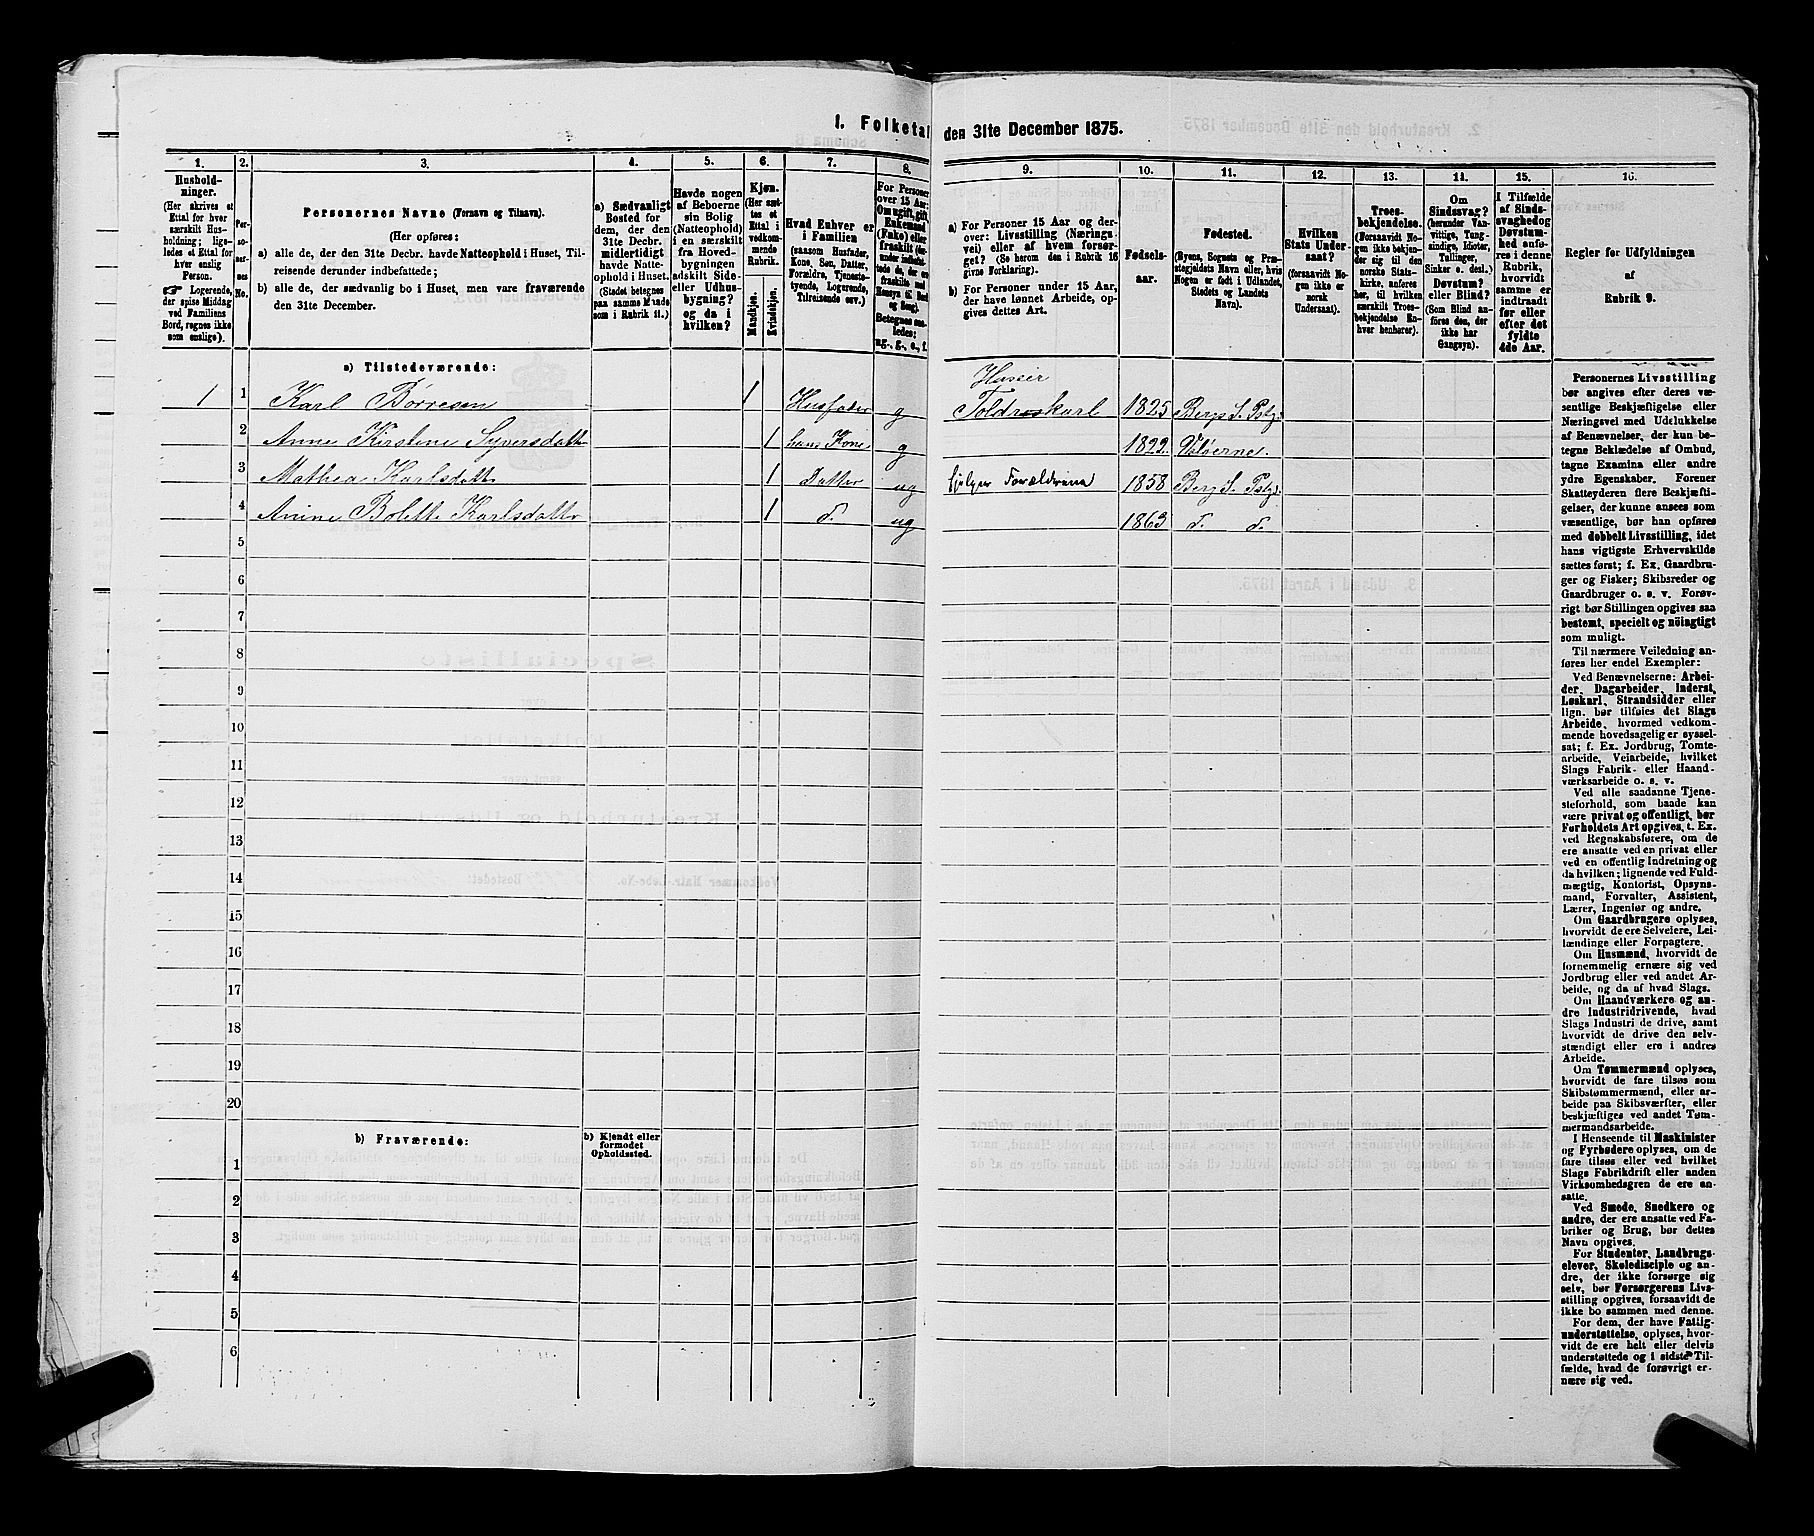 1. Folketal den 31te December 1875.
1. 2. 3. 4. 5. 6. 7. 8. 9. 10. 11. 12. 13. 14. 15. 16.
Husholdninger.
(Her skrives et
Ettal for hver
særskilt Husholdning; ligeledes et Ettal for
hver enslig
Person.
☛ Logerende,
der spise Middag
ved Familiens
Bord, regnes ikke
som enslige).
Personernes No.
Personernes Navne (Fornavn og Tilnavn).
(Her opføres:
a) alle de, der den 31te Decbr. havde Natteophold i Huset, Tilreisende derunder indbefattede;
b) alle de, der sædvanlig bo i Huset, men vare fraværende
den 31te December.
a) Sædvanligt
Bosted for
dem, der den
31te Decbr.
midlertidigt
havde Natteophold i Huset.
(Stedet betegnes
paa samme Maade
som i Rubrik 11.)
Havde nogen
af Beboerne
sin Bolig
(Natteophold)
i en særskilt
fra Hovedbygningen
adskilt Sideeller Udhusbygning?
og da i
hvilken?
Kjøn.
(Her sættes et
Ettal i
vedkommende
Rubrik.
Mandkjøn.
Kvindekjøn.
Hvad Enhver er
i Familien
(saasom Husfader,
Kone, Søn, Datter,
Forældre, Tjenestetyende, Logerende,
Tilreisende osv.)
For Personer
over 15 Aar:
Om ugift, gift,
Enkemand
(Enke) eller
fraskilt
Betegnes saaledes:
ug., g., e., f.
a) For Personer 15 Aar og derover: Livsstilling (Næringsvei) eller af hvem forsørget? (Se herom den i Rubrik 16
givne Forklaring).
b) For Personer under 15 Aar,
der have lønnet Arbeide, opgives dettes Art.
Fødselsaar.
Fødested.
(Byens, Sognets og Præstegjeldets Navn eller, hvis
Nogen er født i Udlandet,
Stedets og Landets
Navn).
Hvilken
Stats Undersaat?
(forsaavidt Nogen ikke er
norsk
Undersaat).
Troesbekjendelse.
(Forsaavidt Nogen ikke bekjender sig til den
norske Statskirke, anføres
her, til hvilken
særskilt Troesbekjendelse Enhver henhører).
Om
Sindssvag?
(herunder Vanvittige, Tungsindige, Idioter,
Tullinger,
Sinker o. desl.)
Døvstum?
eller Blind?
(Som Blind anføres den, der
ikke har
Gangsyn).
I Tilfælde
af Sindssvaghed og
Døvstumhed anføres i denne
Rubrik,
hvorvidt
samme er
indtraadt
før eller
efter det
fyldte
4de Aar.
Regler for Udfyldningen
af
Rubrik 9.
a) Tilstedeværende:
Huseier
1 1 Karl Børresen 1 Husfader g Toldroskarl 1825 Bergs S. Pstgj.
2 Anne Kirstine Syversdatter 1 hans Kone g 1822 Valøerne.
3 Mathea Karlsdatter 1 Datter ug hjelper Forældrene 1858 Bergs S. Pstgj.
4 Anine Bolette Karlsdatter 1 d. ug 1863 d. d.
5
6
7
8
9
10
11
12
13
14
15
16
17
18
19
20
b) Fraværende:
b) Kjendt eller
formodet
Opholdssted.
1
2
3
4
5
6
Personernes Livsstilling
bør angives efter deres væsentlige Beskjæftigelse eller
Næringsvei med Udelukkelse
af Benævnelser, der kun betegne Beklædelse af Ombud,
tagne Examina eller andre
ydre Egenskaber. Forener
Skatteyderen flere Beskjæftigelser, der kunne ansees som
væsentlige, bør han opføres
med dobbelt Livsstilling, idet
hans vigtigste Erhvervskilde
sættes først; f. Ex. Gaardbruger og Fisker; Skibsreder og
Gaardbruger o. s. v. Forøvrigt bør Stillingen opgives saa
bestemt, specielt og nöiagtigt
som muligt.
Til nærmere Veiledning anføres her endel Exempler:
Ved Benævnelserne: Arbeider, Dagarbeider, Inderst,
Løskarl, Strandsidder eller
lign. bør tilføies det Slags
Arbeide, hvormed vedkommende hovedsagelig er sysselsat; f. Ex. Jordbrug, Tomtearbeide, Veiarbeide, hvilket
Slags Fabrik- eller Haandværksarbeide o. s. v.
Ved alle saadanne Tjenesteforhold, som baade kan
være privat og offentligt, bør
Forholdets Art opgives, t. Ex.
ved Regnskabsførere, om de
ere ansatte ved en privat eller
ved en offentlig Indretning og
da hvilken; lignende ved Fuldmægtig, Kontorist, Opsynsmand, Forvalter, Assistent,
Lærer, Ingeniør og andre.
Om Gaardbrugere oplyses,
hvorvidt de ere Selveiere, Leilændinge eller Forpagtere.
Om Husmænd, hvorvidt de
fornemmelig ernære sig ved
Jordbrug eller ved andet Arbeide, og da af hvad Slags.
Om Haandværkere og andre Industridrivende, hvad
Slags Industri de drive, samt
hvorvidt de drive den selvstændigt eller ere i andres
Arbeide.
Om Tømmermænd oplyses,
hvorvidt de fare tilsøs som
Skibstømmermænd, eller arbeide paa Skibsværfter, eller
beskjæftiges ved andet Tømmermandsarbeide.
I Henseende til Maskinister
og Fyrbødere oplyses, om de
fare tilsøs eller ved hvilket
Slags Fabrikdrift eller anden
Virksomhedsgren de ere ansatte.
Ved Smede, Snedkere og
andre, der ere ansatte ved Fabriker og Brug, bør dettes
Navn opgives.
For Studenter, Landbrugselever, Skoledisciple og andre, der ikke forsørge sig
selv, bør Forsørgerens Livsstilling opgives, forsaavidt de
ikke bo sammen med denne.
For dem, der have Fattigunderstøttelse, oplyses, hvorvidt de ere helt eller delvis
understøttede og i sidste Tilfælde, hvad de forøvrigt ernære sig ved.